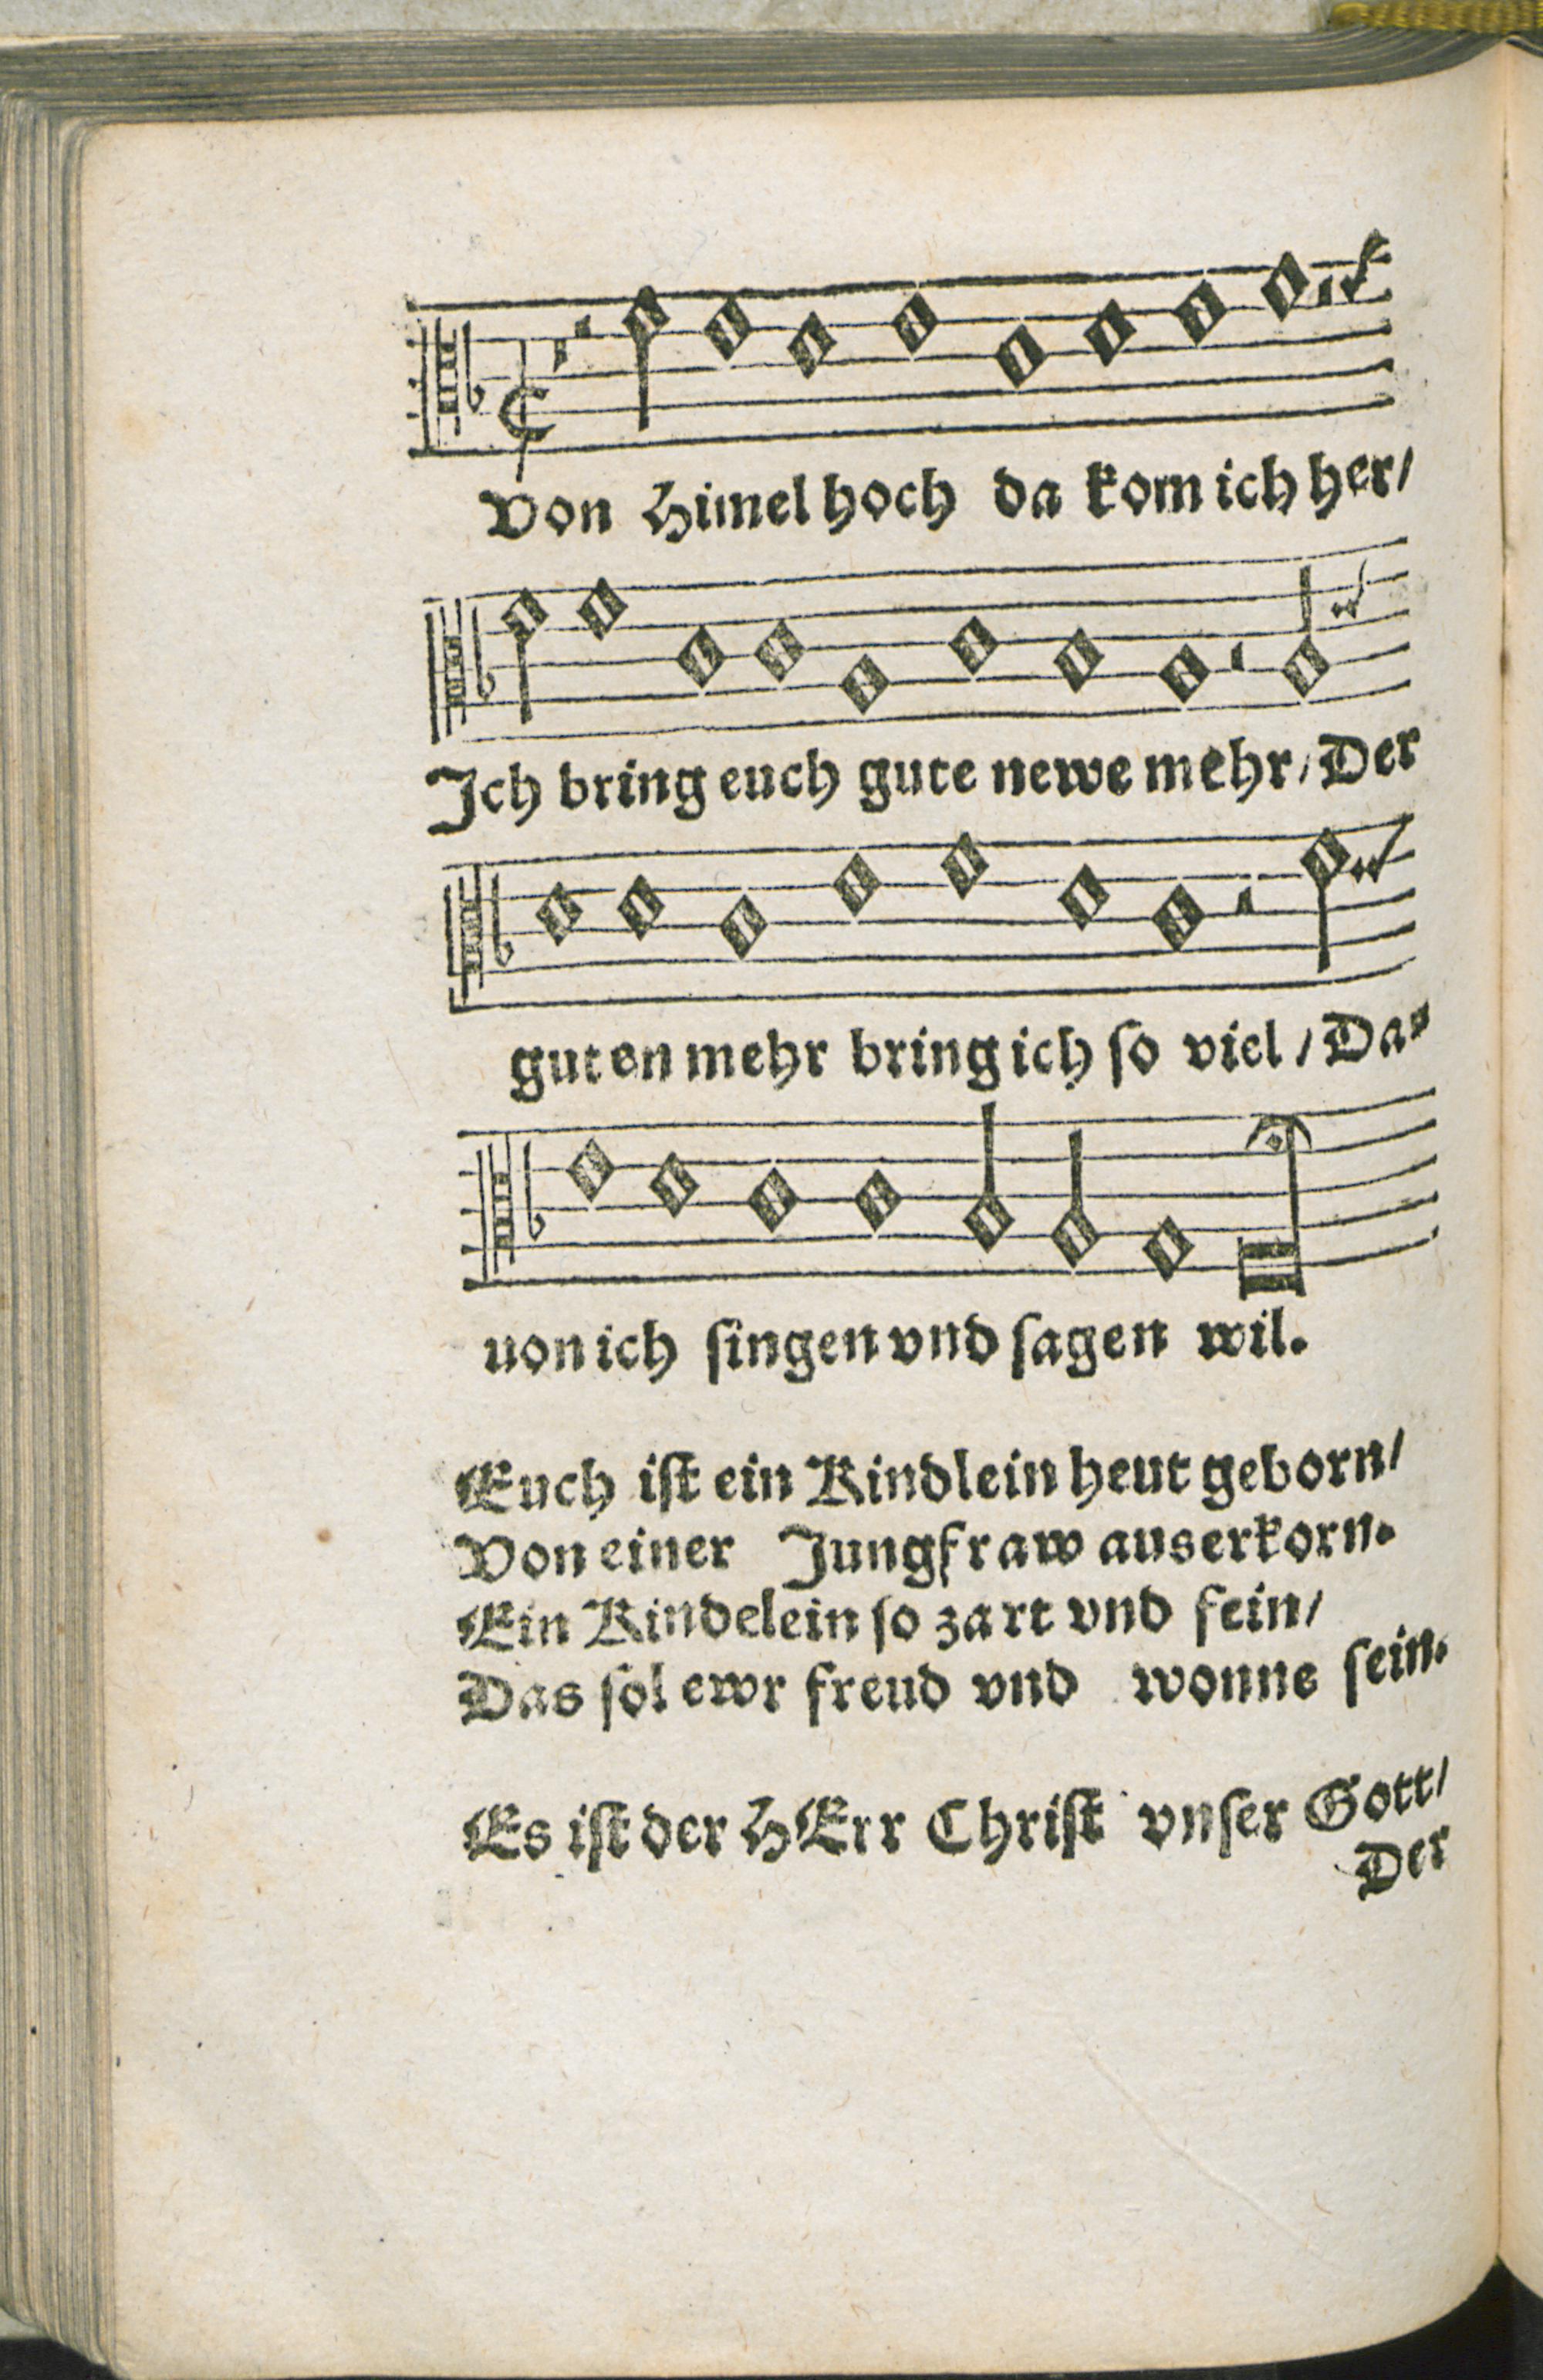 Von Himel hoch da kom ich her/
Ich bring euch gute newe mehr/ Der
guten mehr bring ich ſo viel / Da⸗
uon ich ſingen vnd ſagen wil.
Euch iſt ein Kindlein heut geborn/
Von einer Jungfraw auserkorn.
Ein Kindelein ſo zart vnd fein/
Das ſol ewr freud vnd wonne ſein.
Es iſt der HErr Chriſt vnſer Gott/
Der